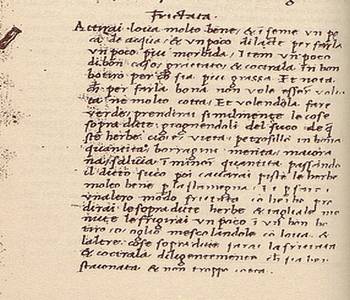 Frictata.
Acconzai lova molto bene, & inseme un po
ca de acqua, & un poco di lacte per farla
un poco più morbida, Item un poco
di bon caso grattato, & cocirala in bon
botiro per che sia più grassa. Et nota
che per farla bona non vole esser volta
ta ne molto cotta. Et volendola fare
verde, prendirai similmente le cose
sopra ditte giongendoli del suco de queste
ste herbe, cioè vieta, petrosillo in bona
quantita, borragine, menta, maiora
na, salvia in minor quantita passando
il ditto suco poi cavarai piste le herbe
molto bene per la stamegna.
un altro modo frictata con herbe
dirai le sopra ditte herbe & tagliale me
nute le frigirai un poco in un bon bo
tiro, o oglio mescolandole con lova, &
laltre cose sopra ditte farai la frictata
& cocirala diligentemente che sia ben
stasonata & non troppo cotta.